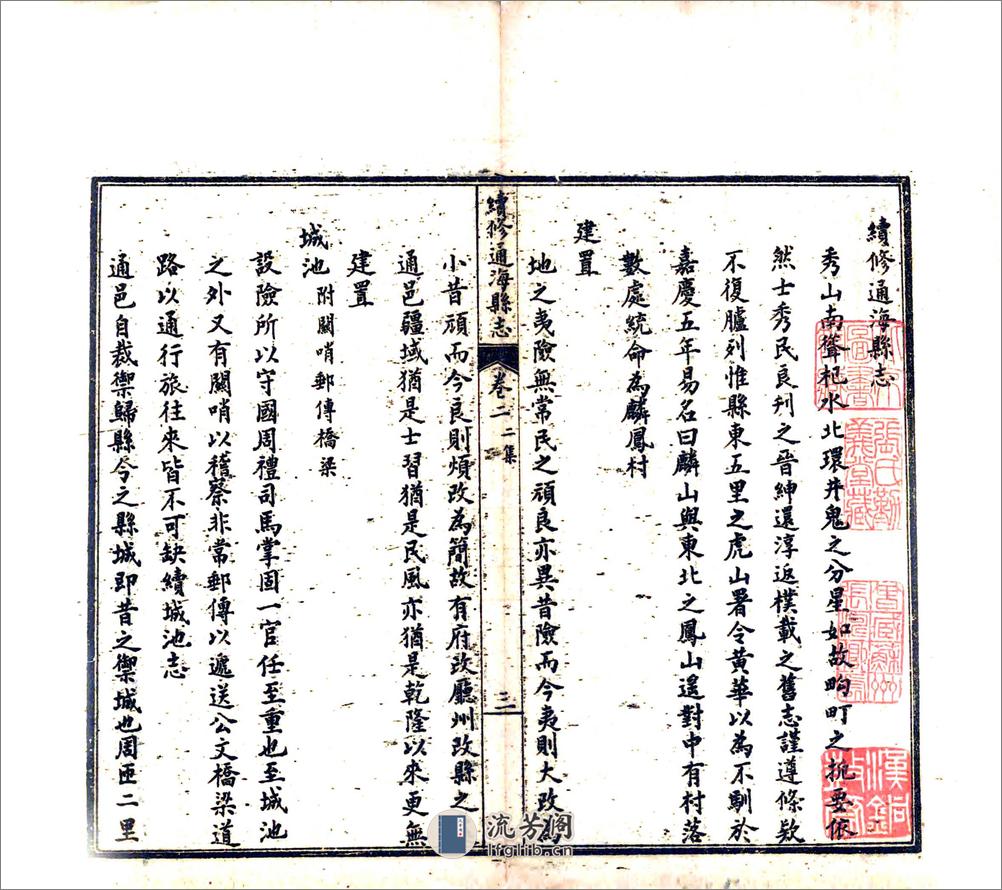 續修通海縣志
秀山南聳杞水北環井鬼之分星如故昫町之扼要依
然士秀民良列之晉紳還淳返樸載之舊志謹遵條欵
不復臚列惟縣東五里之虎山署令黃華以為不馴於
嘉慶五年易名曰麟山與東北之鳳山遥對中有村落
數處統命為麟鳳村
建置
地之夷險無常民之頑良亦異昔險而今夷則大改為
續修通海縣志
卷二
二集
三
小昔頑而今良則煩改為簡故有府改廳州改縣之
通邑疆域猶是士習猶是民風亦猶是乾隆以來更無
建置
城池附關哨郵傳橋梁
設險所以守國周禮司馬掌固一官任至重也至城池
之外又有關哨以稽察非常郵傳以遞送公文橋梁道
路以通行旅往來皆不可缺續城池志
通邑自裁禦歸縣今之縣城即昔之禦城也周匝二里
流芳阁
lfglib.cn